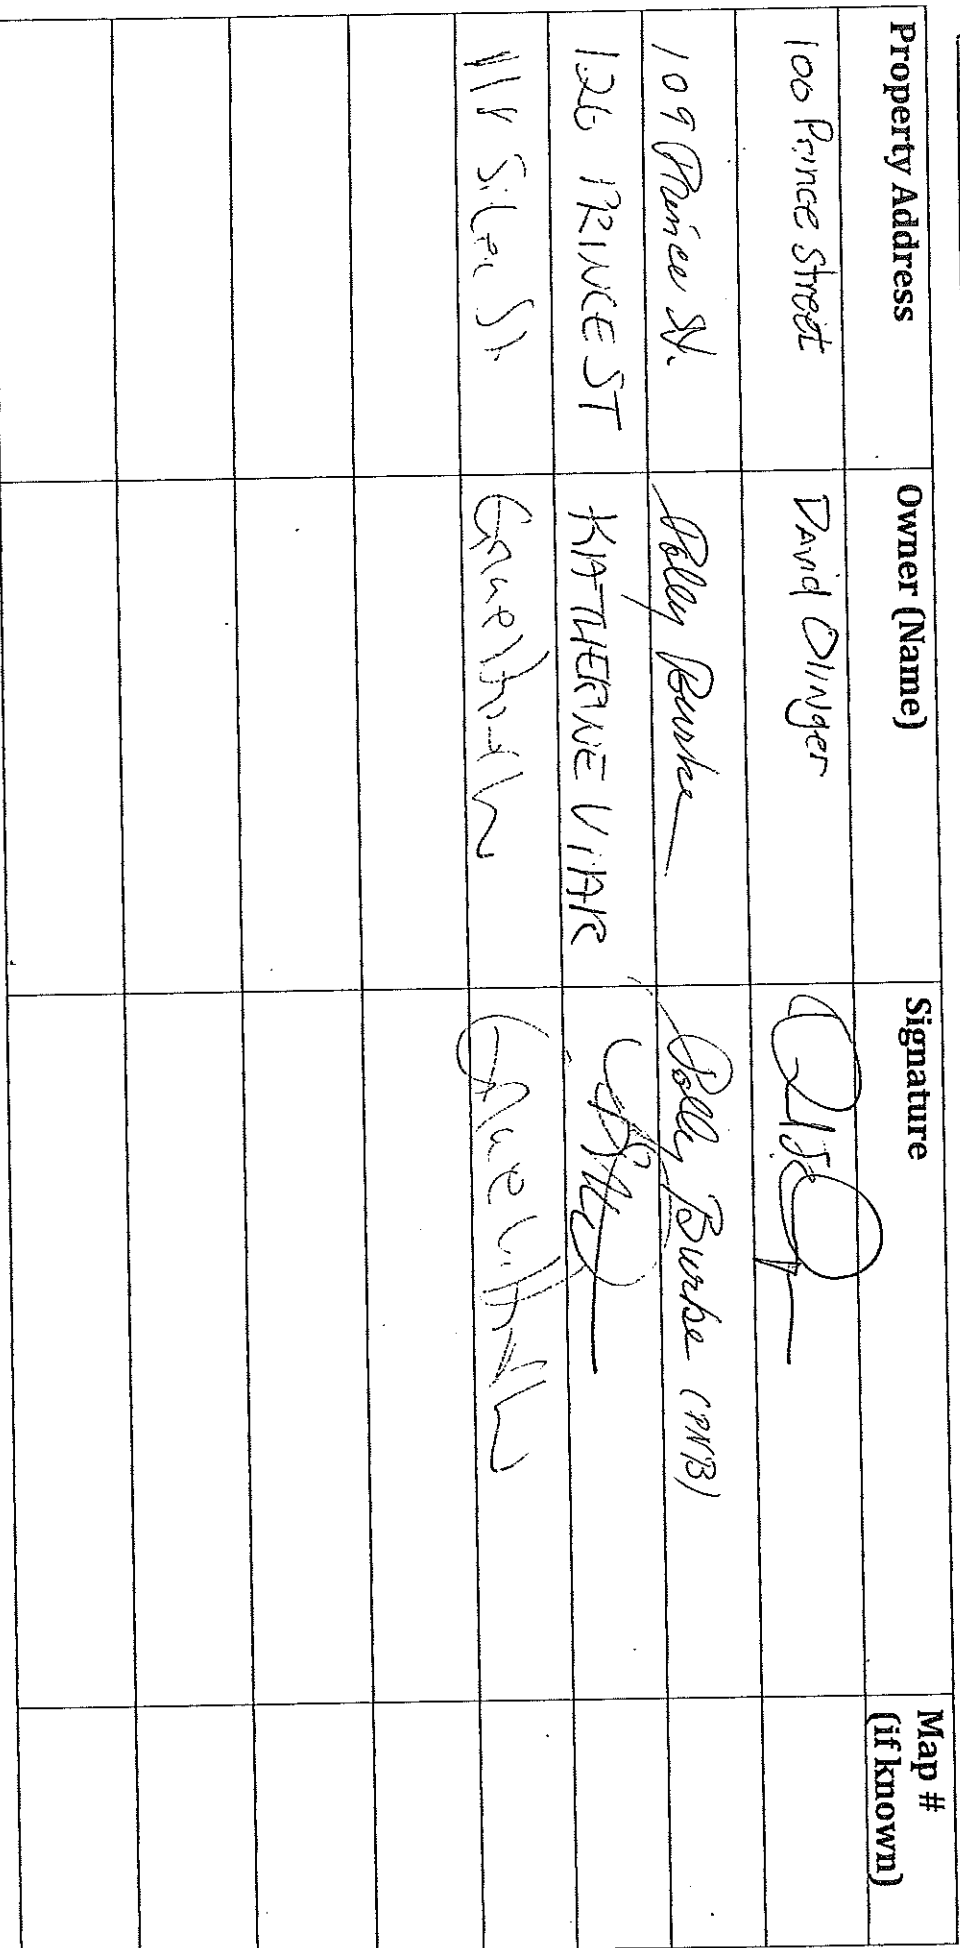 Property Address Owner (Name) Signature Map #
(if known)
100 Prince Street David Olinger
109 Prince St. Polly Burke Polly Burke (PNB)
126 PRINCE ST KATHERINE VIAR
St.